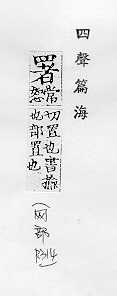 四聲篇海
署常恕
切置也書檢
也部置也
(网部 P314)